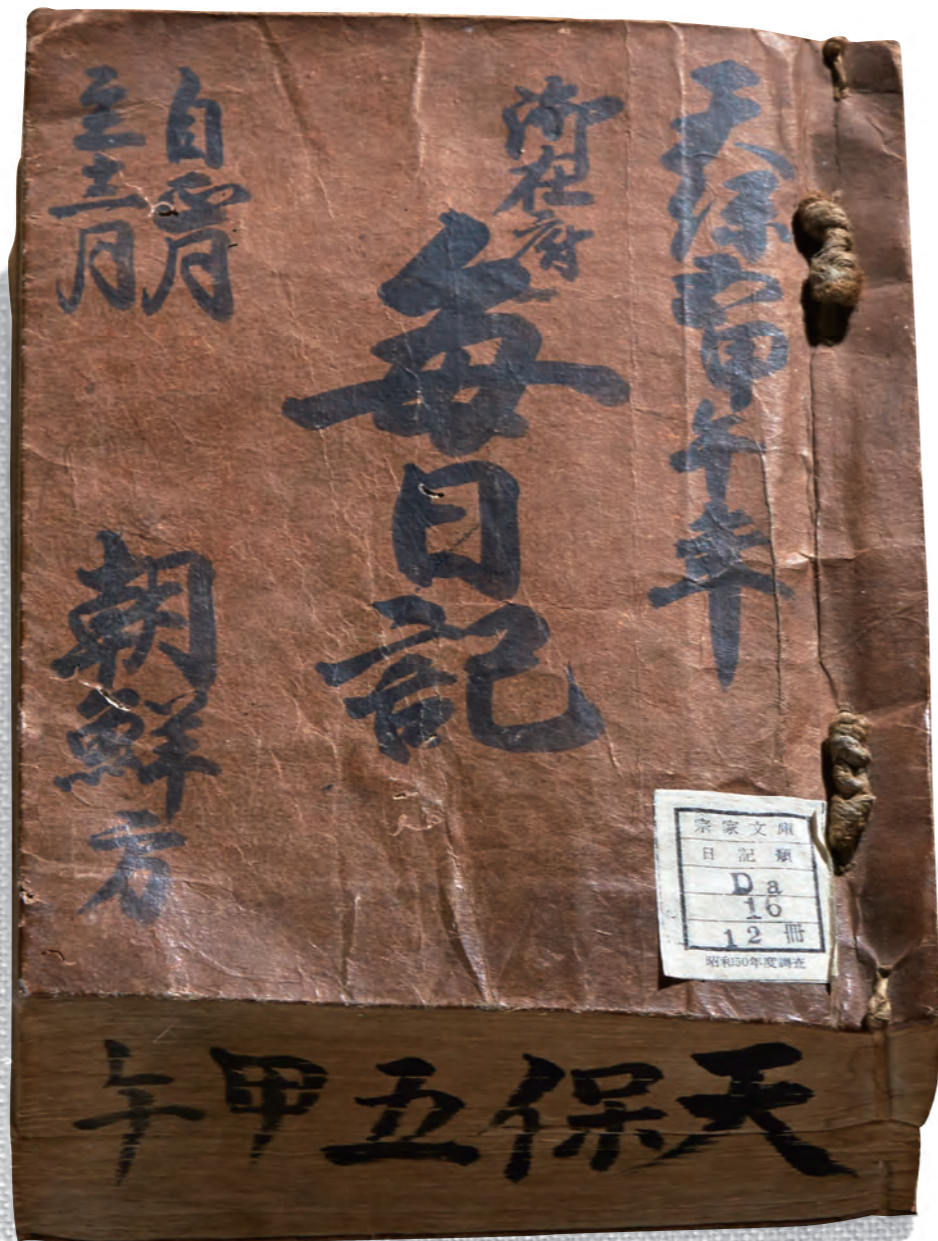 天保五甲午年
御在府
毎日記
自正月
至十二月
朝鮮方
宗家文庫
日記類
Da
16
12冊
昭和50年度調査
天保五甲午